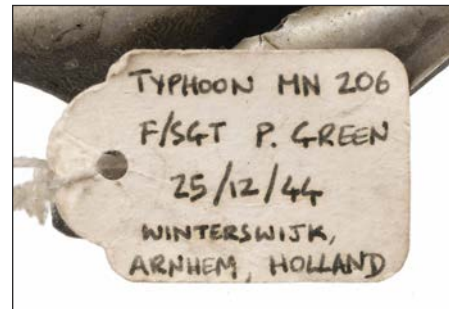 TYPHOON MN 206
F/SGT P. GREEN
25/12/44
WINTERSWIJK,
ARNHEM, HOLLAND